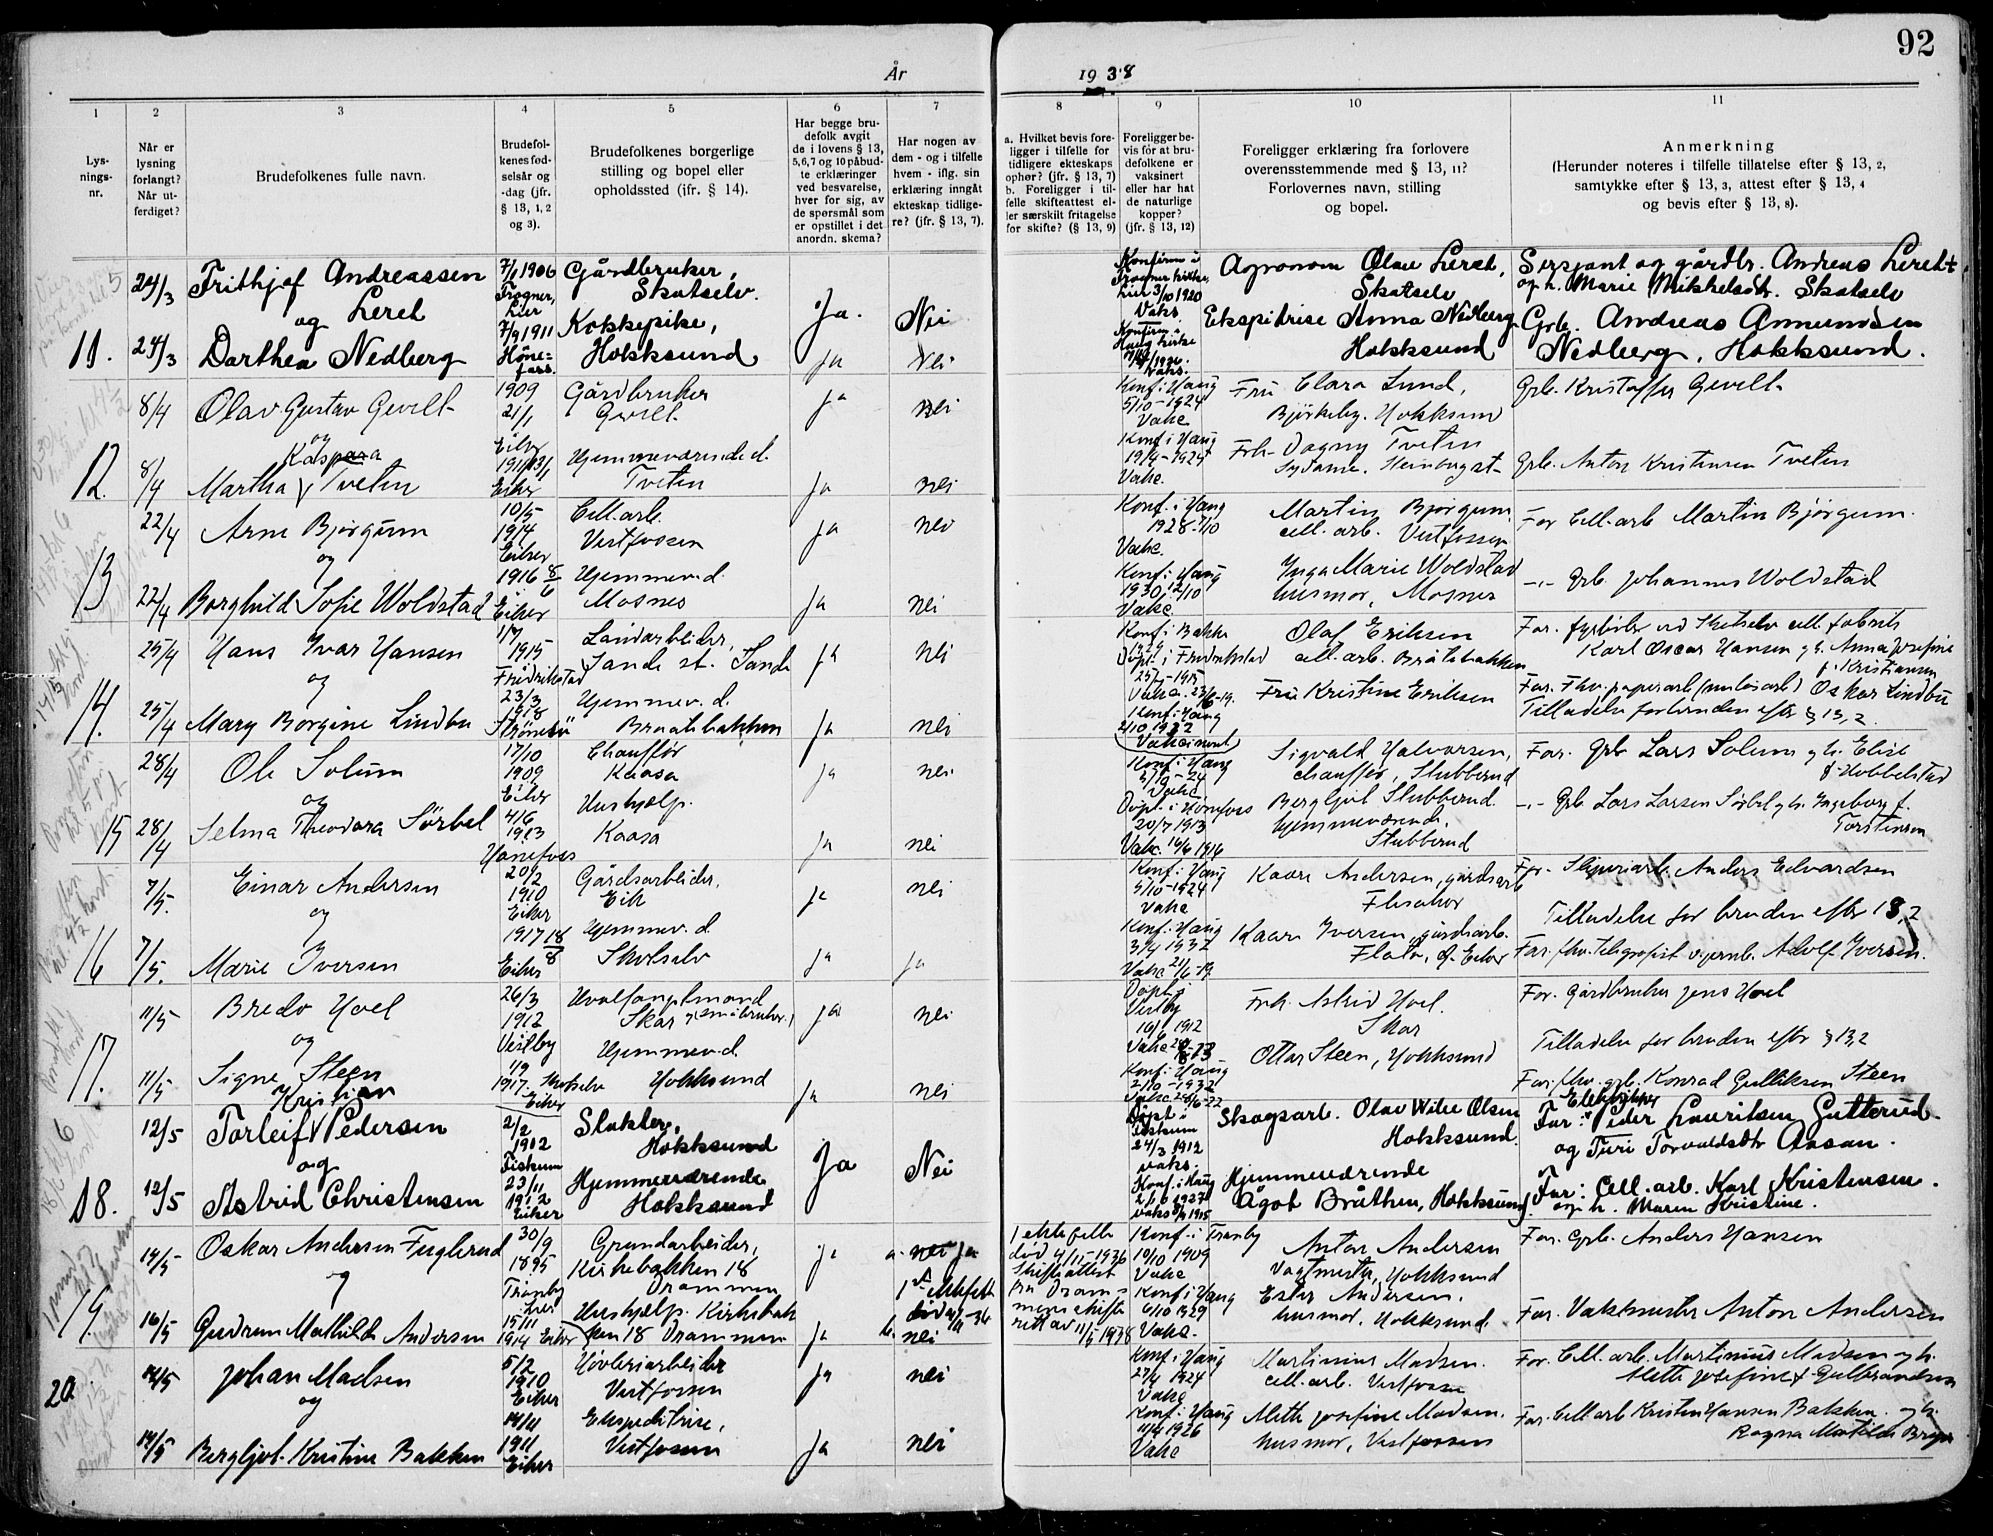 92
År 1938
1 2 3 4 5 6 7 8 9 10 11
Lys-
nings-
nr.
Når er
lysning
forlangt?
Når ut-
ferdiget?
Brudefolkenes fulle navn.
Brudefol-
kenes fød-
selsår og
-dag (jfr.
§ 13, 1, 2
og 3).
Brudefolkenes borgerlige
stilling og bopel eller
opholdssted (jfr. § 14).
Har begge bru-
defolk avgit
de i lovens § 13,
5, 6, 7 og 10 påbud-
te erklæringer
ved besvarelse,
hver for sig, av
de spørsmål som
er opstillet i det
anordn. skema?
Har nogen av
dem - og i tilfelle
hvem - iflg. sin
erklæring inngåt
ekteskap tidlige-
re? (jfr. § 13, 7).
a. Hvilket bevis fore-
ligger i tilfelle for
tidligere ekteskaps
ophør? (jfr. § 13, 7)
b. Foreligger i til-
felle skifteattest el-
ler særskilt fritagelse
for skifte? (§ 13, 9)
Foreligger be-
vis for at bru-
defolkene er
vaksinert
eller har hat
de naturlige
kopper?
(jfr. § 13, 12)
Foreligger erklæring fra forlovere
overensstemmende med § 13, 11?
Forlovernes navn, stilling
og bopel.
Anmerkning
(Herunder noteres i tilfelle tillatelse efter § 13, 2,
samtykke efter § 13, 3, attest efter § 13, 4
og bevis efter § 13, 8).
11.
24/3
Frithjof Andreassen
Leret
og
7/1 1906
Frogner,
Lier
Gårdbruker,
Skotselv.
Ja.
Nei
Konfirm i
Frogner kirke,
Lier 3/10 1920
Vaks.
Agronom Olav Leret,
Skotselv
Sersjant og gårdbr. Andreas Leret
og h. Marie Mikkelsdtr. Skotselv
24/3
Dorthea Nedberg
7/9 1911
Høne-
foss.
Kokkepike,
Hokksund
Ja
Nei
Konfirm i
Haug kirke
Vaks.
Ekspeditrise Anna Nedberg
Hokksund
Grbr. Andreas Amundsen
Nedberg, Hokksund.
12.
8/4
Olav Gustav Gevelt
og
1909
21/1
Eiker
Gårdbruker
Gevelt.
ja
nei
Konf. i Haug
5/10-1924
Vakc.
Fru Clara Lund,
Bjørkeby. Hokksund
Grb. Kristoffer Gevelt
8/4
Kaspara
Martha Tvetin
1911 13/1
Eiker
Hjemmeværende d.
Tvetin
ja
nei
Konf i Haug
Vakc.
Frk. Dagny Tvetin
Grb. Anton Kristensen Tvetin
13
22/4
Arne Bjørgum
og
10/5
1914
Eiker
Cell.arb.
Vestfossen
ja
nei
Konf. i Haug
1928-7/10
Vakc.
Martin Bjørgum
cell. arb. Vestfossen
Far Cell.arb Martin Bjørgum.
22/4
Borghild Sofie Woldstad
1916 8/6
Eiker
Hjemmev. d.
Mosnes
ja
nei
Konf. i Haug
1930 12/10
Vakc.
Inga Marie Woldstad
husmor, Mosnes
-"- Grb. Johannes Woldstad
14.
25/4
Hans Ivar Hansen
og
1/7
1915
Fredrikstad
Landarbeider,
Sande st. Sande
ja
nei
Konf. i Bakke
1929
Døpt. i Fredrikstad
25/7-1915
Olaf Eriksen
cell. arb. Bråtabakken
Far. fyrbøter ved Skotselv cell. fabrik
Karl Oscar Hansen og h. Anna Josefine
f. Kristiansen
25/4
Mary Borgine Lindbu
23/3
1918
Strømsø
Hjemmev. d.
Braatabakken
ja
nei
Konf. i Haug
2/10 1932
Fru Kristine Eriksen
Far. Fhv. paperarb. Oskar Lindbu
Tilladelse foreligger efter § 13, 2.
15
28/4
Ole Solum
og
17/10
1909
Eiker
Chauffør
Kaasa
ja
nei
Konf. i Haug
Vakc
Sigvald Halvorsen,
chauffør, Stubberud
Far. Grb Lars Solum og h. Elise
f. Hobbelstad
28/4
Selma Theodora Sørbel
4/6
1913
Hønefoss
Hushjelp.
Kaasa
ja
nei
Døpt. i Hønefoss
20/7 1913
Vakc. 16/6 1916
Bergljot Stubberud.
hjemmeværende.
Stubberud
-"- Grb Lars Larsen Sørbel og h. Ingeborg f.
Torstensen
16
7/5.
Einar Andersen
og
20/2
1910
Eiker
Gårdsarbeider,
Eik
ja
nei
Konf. i Haug
5/10-1924
Vakc
Kaare Andersen, gårdsarb
Flesaker
Far. Sliperiarb. Anders Edvardsen
Tilladelse for bruden efter 13, 2
7/5.
Marie Iversen
1917 18/8
Eiker
Hjemmev. d.
Skotselv
ja
ja
Konf. i Haug
3/4 1932
Kaare Iversen, gårdsarb.
Far. fhv. telegrafist v. jernb. Adolf Iversen.
17.
11/5
Bredo Hoel
og
26/3
1912
Vestby
Hvalfangstmand
Skar (småbruker)
ja
nei
Døpt i
Vestby
1912
Frk. Astrid Hoel.
Skar
Far. Gårdbruker Jens Hoel
Tilladelse for bruden efter § 13, 2
11/5
Signe Steen
1917. Skotselv
Eiker
Hjemmev.d.
Hokksund
ja
nei
Konf. i Haug
2/10-1932
Ottar Steen, Hokksund
Far. fhv. grb. Konrad Gulliksen Steen
18.
12/5
Kristian
Torleif Pedersen
og
2/2
1912
Fiskum
Slakter,
Hokksund
Ja
Nei
Døpt i
Fiskum
24/3 1912
vaks.
Skogsarb. Olav Wike Olsen
Hokksund.
Far: Peder Lauritsen Gutterud.
og Turi Torvaldsdtr Aasan.
12/5
Astrid Christensen
23/11
1912
Eiker
Hjemmeværende
Hokksund
Konf. i Haug
2/10 1927
Hjemmeværende
Ågot Bråthen, Hokksund
Far: Cell.arb. Karl Kristensen.
og h. Maren Kristine.
19.
14/5
Oskar Andersen Fuglerud
og
30/9
1895
Tranby
Lier
Grundarbeider,
Kirkebakken 18
Drammen
ja
a. nei ja
1ste ektefelle
1 ektefelle
død 4/11-1936
Skifteattest
fra Dram-
mens skifte-
rett av 11/5 1938
Konf. i Tranby
10/10 1909
Vakc
Anton Andersen
Vagtmester, Hokksund
Far. Grb. Anders Hansen
16/5
Gudrun Mathilde Andersen
15/11
1914 Eiker
Hushjelp. Kirkebak-
ken 18 Drammen
ja
b. nei
Konf i Haug
6/10 1929
Vakc.
Ester Andersen.
husmor, Hokksund.
Far. Vaktmester Anton Andersen
20
14/5
Johan Madsen
og
5/2
1910
Eiker
Høvleriarbeider
Vestfossen
ja
nei
Konf. i Haug
27/4 1924
Vakc
Martinius Madsen.
cell.arb. Vestfossen
Far. Cell. arb. Martinius Madsen og h.
Mette Josefine f. Gulbrandsen
14/5
Bergljot Kristine Bakken
14/11
1911
Eiker
Ekspeditrise,
Vestfossen
ja
nei
Konf. i Haug
11/4 1926
Vakc
Mette Josefine Madsen.
husmor, Vestfossen
Far. Cell.arb Kristen Hansen Bakken. og h.
Ragna Matilde